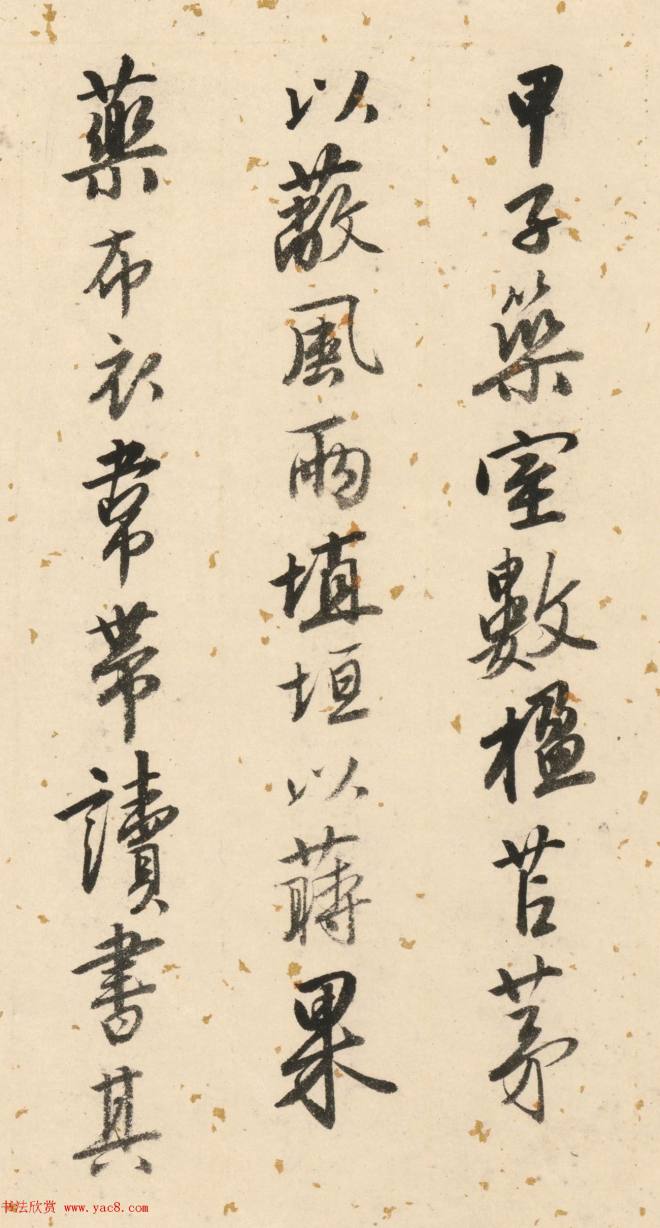 甲子築室數楹苫茅
以蔽風雨填垣以蒔果
藥布衣韋帶讀書其
书法欣赏 www.yac8.com